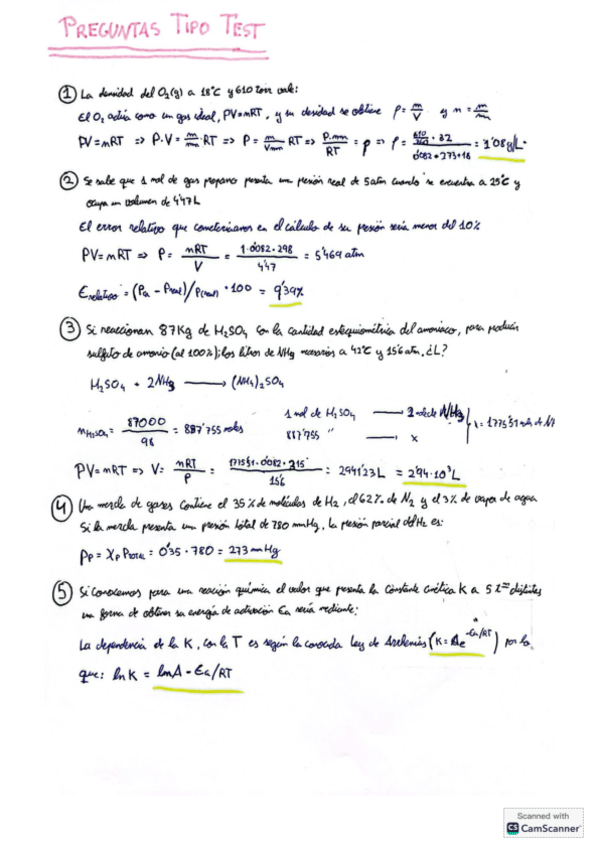 PREGUNTAS TIPO TEST
① La densidad del O₂(g) a 18ºC y 610 torr vale:
El O₂ actúa como un gas ideal, PV=nRT, y su densidad se obtiene ρ = m/V y n = m/mm
PV=nRT => P·V = m/mm ·RT => P = m/V·mm RT => P·mm/RT = ρ => ρ = 610/760 · 32 / 0'082 · 273+18 = 1'08 g/L
② Se sabe que 1 mol de gas propano presenta una presión real de 5 atm cuando se encuentra a 25ºC y
ocupa un volumen de 4'47 L
El error relativo que cometeríamos en el cálculo de su presión sería menor del 10%
PV = nRT => P = nRT/V = 1·0'082·298/4'47 = 5'469 atm
Erelativo = (Pid - Preal)/P(real) · 100 = 9'39%
③ Si reaccionan 87 Kg de H₂SO₄ con la cantidad estequiométrica del amoniaco, para producir
sulfato de amonio (al 100%); los litros de NH₃ necesarios a 42ºC y 15'6 atm, ¿L?
H₂SO₄ + 2NH₃ ⟶ (NH₄)₂SO₄
nH₂SO₄ = 87000/98 = 887'755 moles
1 mol de H₂SO₄ ⟶ 2 moles de NH₃
887'755 " ⟶ x
x = 1775'51 moles de NH
PV = nRT => V = nRT/P = 1775'51·0'082·315/15'6 = 2941'23 L = 2'94·10³ L
④ Una mezcla de gases contiene el 35% de moléculas de H₂, el 62% de N₂ y el 3% de vapor de agua
Si la mezcla presenta una presión total de 780 mmHg, la presión parcial del H₂ es:
Pp = Xp PTOTAL = 0'35 · 780 = 273 mmHg
⑤ Si conocemos para una reacción química el valor que presenta la constante cinética K a 5 distintas
una forma de obtener su energía de activación Ea sería mediante:
La dependencia de la K, con la T es según la conocida Ley de Arrhenius (K = Ae^-Ea/RT) por lo
que: ln K = lnA - Ea/RT
Scanned with
CS CamScanner